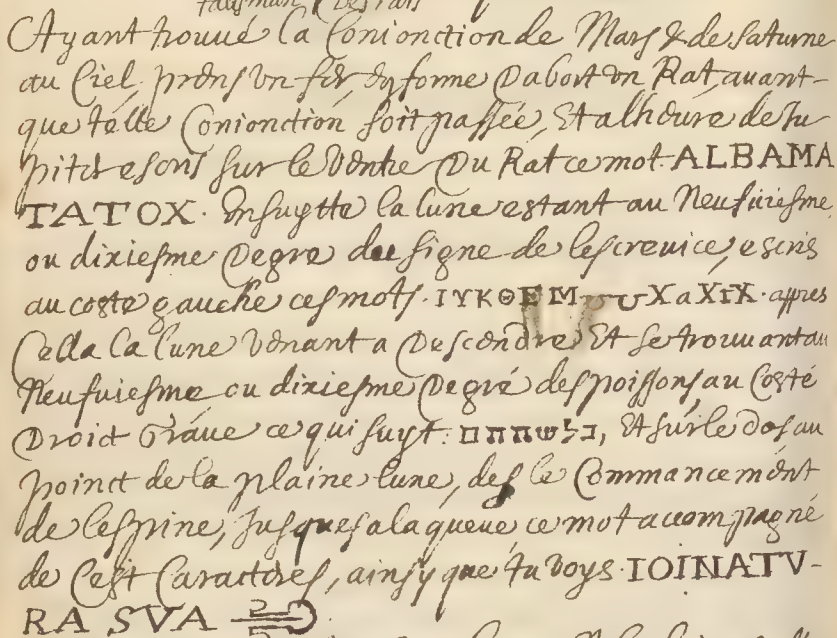 Talisman des rats
Ayant trouué la Conionction de Mars & de Saturne
au Ciel, prens vn fer, & forme dabort vn Rat, auant-
que telle Conionction soit passée, Et alheure de Iu-
piter escris sur le ventre du Rat ce mot. ALBAMA
TATOX. Ensuytte la lune estant au Neufuiesme
ou dixiesme degre du signe de lescreuice, escris
au coste gauche ces mots. apres
Cella la lune venant a descendre Et se trouuant au
Neufuiesme ou dixiesme degré des poissons, au Costé
Droict Graue ce qui suyt: Et sur le dos au
poinct de la plaine lune, des le Commancement
de lespine, Jusques a la queue, ce mot accompagné
de Cest Caracteres, ainsy que tu voys. IOINATV-
RA SVA